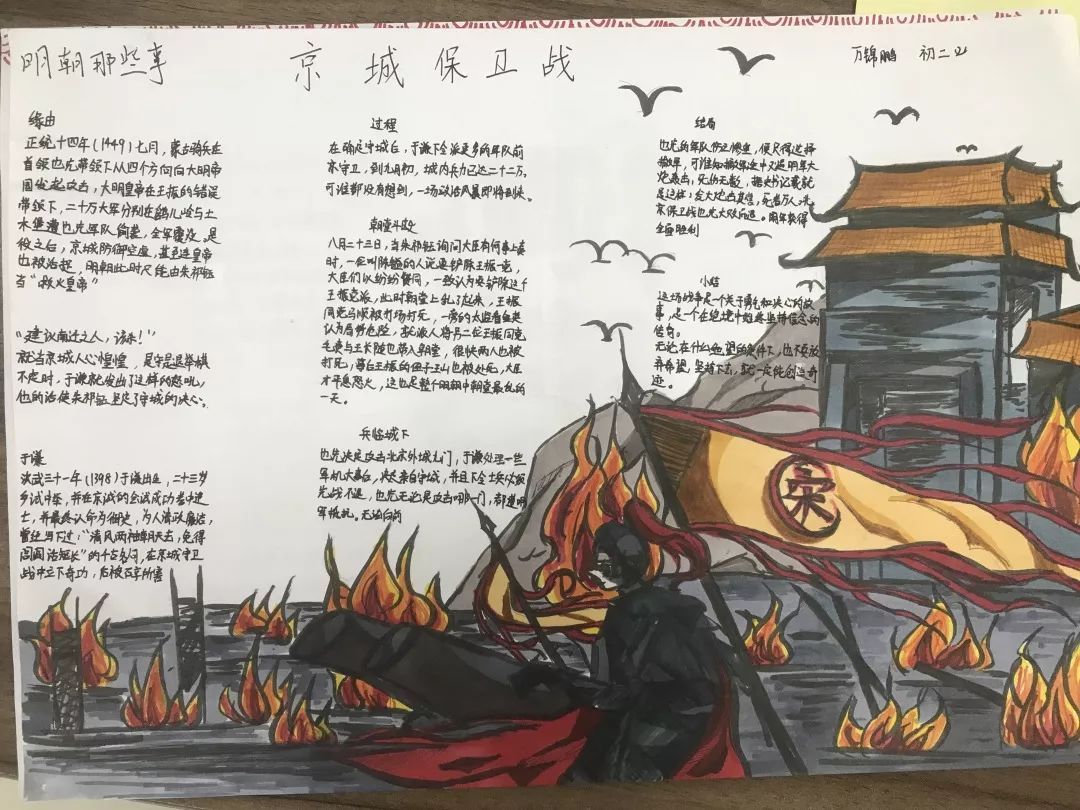 明朝那些事
京城保卫战
万锦鹏 初二
缘由
正统十四年(1449)七月，蒙古骑兵在
首领也先带领下从四个方向向大明帝
国发起攻击，大明皇帝在王振的错误
带领下，二十万大军分别在鹞儿岭与土
木堡遭也先军队偷袭，全军覆没。是
役之后，京城防御空虚，甚至连皇帝
也被活捉，明朝此时只能由朱祁钰
当"救火皇帝"
"建议南迁之人，该杀！"
就当京城人心惶惶，是守是退举棋
不定时，于谦就发出了这样的怒吼，
他的话使朱祁钰坚定了守城的决心。
于谦
洪武三十一年(1398)于谦出生，二十三岁
乡试中举，并在京城的会试成功考中进
士，并最终认命为御史，为人清政廉洁，
曾经写下过："清风两袖朝天去，免得
闾阎话短长"的千古名句，在京城守卫
战中立下奇功，后被百享所害
过程
在确定守城后，于谦下令派更多的军队前
京守卫，到九月初，城内兵力已达二十二万，
可谁都没有想到，一场政治风暴即将到来。
朝堂斗殴
八月二十三日，当朱祁钰询问大臣有何事上奏
时，一位叫陈镒的人说要铲除王振一党，
大臣们纷纷赞同，一致认为要铲除这个
王振党派，此时朝堂上乱了起来，王振
同党马顺被打场打死，一旁的太监看
认为局势危险，就派人将另二位王振同党
毛贵与王长随也带入朝堂，很快两人也被
打死，等后王振的侄子王山也被处死，大臣
才平息怒火，这也是整个明朝中朝堂最乱的
一天。
兵临城下
也先决定攻击北京外城九门，于谦处理一些
军机大事后，决定亲自守城，并且下令士兵
先战不退，也先无论是攻击哪一门，都遭明
军抵抗。无
结局
也先的军队伤亡惨重，便只得选择
撤军，可谁知撤军途中又遇明军大
炮轰击，死伤无数，据史书记载就
是这样：发大炮击其营，死者万人，北
京保卫战也先大败而退。明军获得
全面胜利
小结
这场战争是一个关于勇气和决心的故
事，是一个在绝境中始终坚持信念的
传奇。
无论在什么绝望的条件下，也不要放
弃希望，坚持下去，就一定能创造奇
迹。